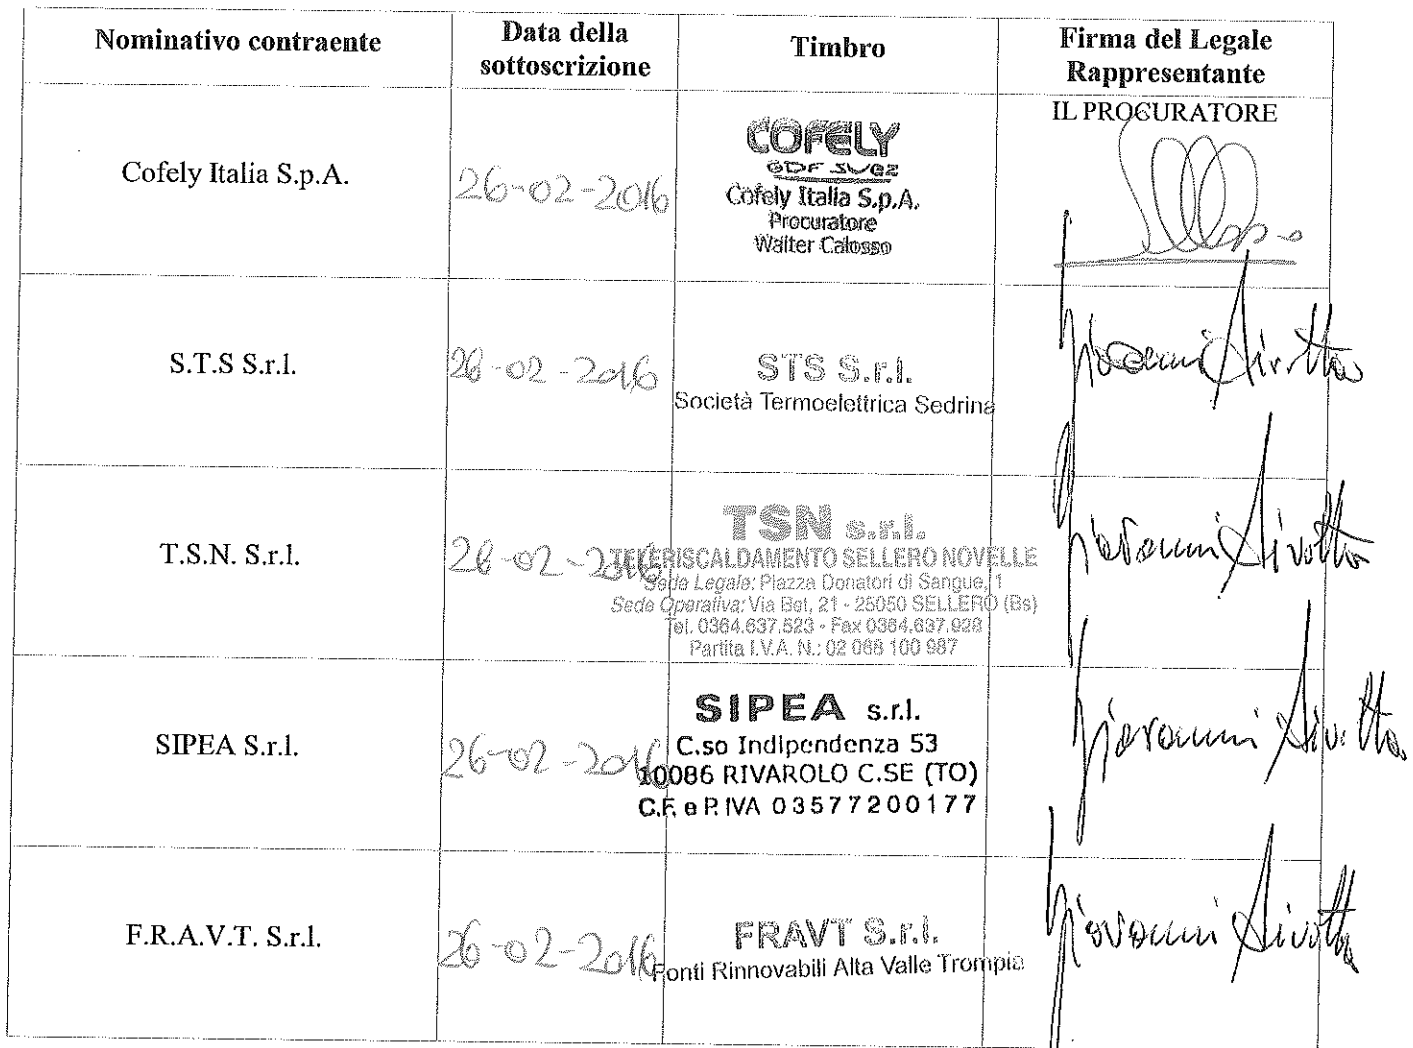 Nominativo contraente
Data della
sottoscrizione
Timbro
Firma del Legale
Rappresentante
Cofely Italia S.p.A.
26-02-2016
COFELY
GDF SUEZ
Cofely Italia S.p.A.
Procuratore
Walter Calosso
IL PROCURATORE
S.T.S S.r.l.
26-02-2016
STS S.r.l.
Società Termoelettrica Sedrina
Giovanni Sivotta
T.S.N. S.r.l.
26-02-2016
TSN s.r.l.
TELERISCALDAMENTO SELLERO NOVELLE
Sede Legale: Piazza Donatori di Sangue, 1
Sede Operativa: Via Bet, 21 - 25050 SELLERO (Bs)
Tel. 0364.637.523 - Fax 0364.637.928
Partita I.V.A. N.: 02 066 100 987
Giovanni Sivotta
SIPEA S.r.l.
26-02-2016
SIPEA s.r.l.
C.so Indipendenza 53
10086 RIVAROLO C.SE (TO)
C.F. e P. IVA 03577200177
Giovanni Sivotta
F.R.A.V.T. S.r.l.
26-02-2016
FRAVT S.r.l.
Fonti Rinnovabili Alta Valle Trompia
Giovanni Sivotta